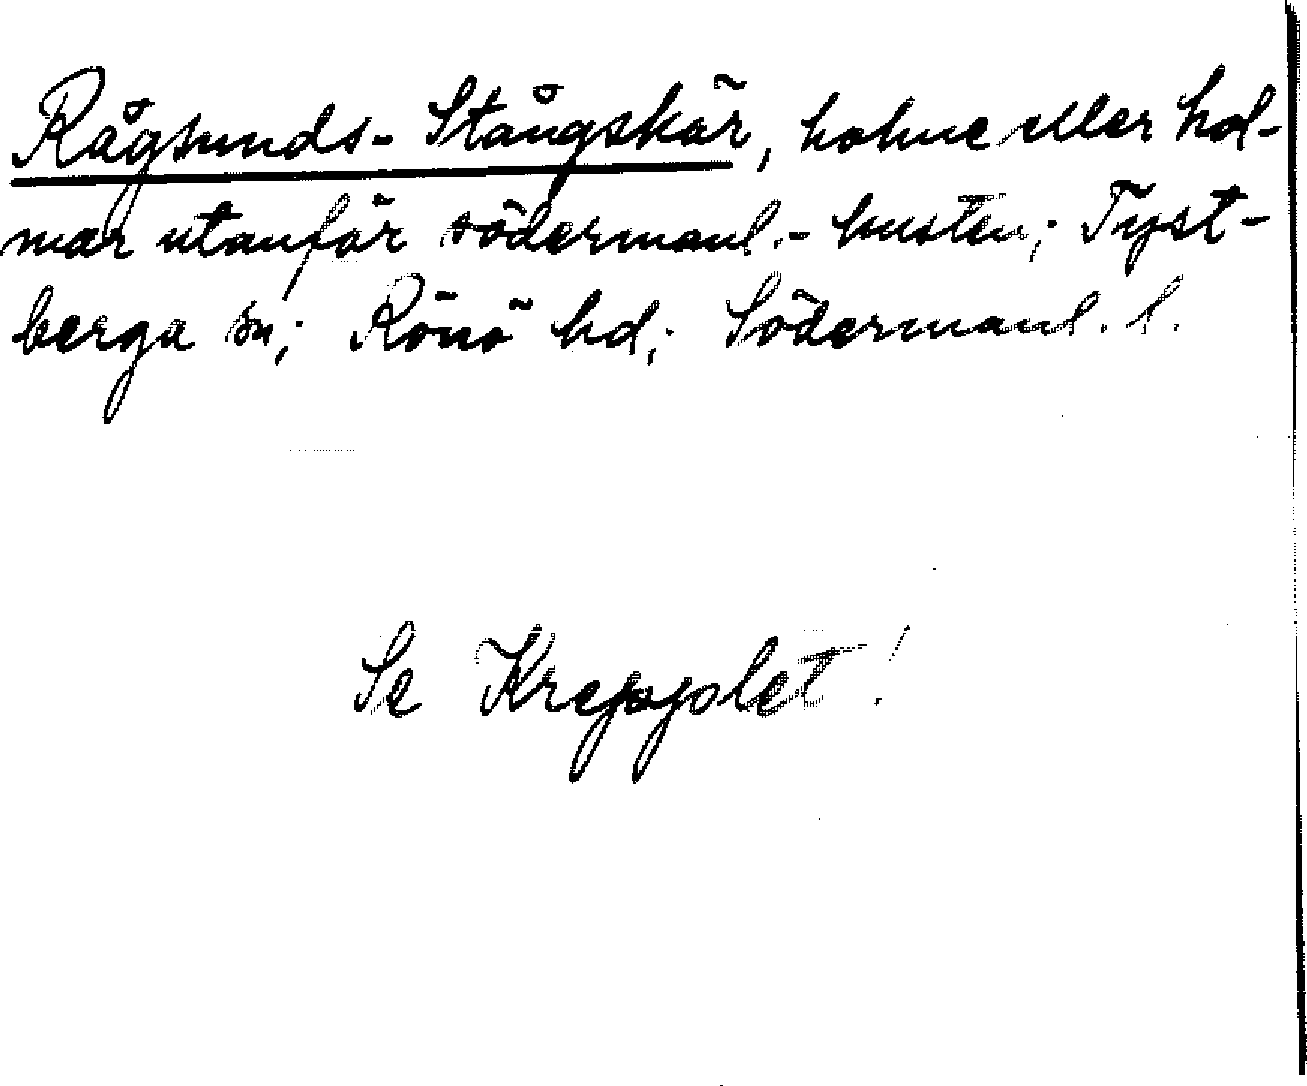 Rågsunds- Stångskär, holme eller hol-
mar utanför södermanl.- kusten; Tyst-
berga sn; Rönö hd; Södermanl. l.
Se Krepplet!